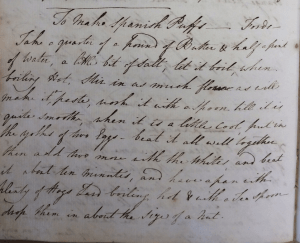 To Make Spanish Puffs
Take a quarter of a pound of Butter & half a pint
of Water, a little bit of Salt, let it boil, when
boiling Hot, Stir in as much flower as will
make it paste, work it with a Spoon till it is
quite smooth, when it is a little Cool put in
the Yolks of two Eggs - beat it all well together
then add two more with the Whites and beat
it about ten minutes, and have a pan with
plenty of Hogs Lard boiling hot & with a Tea spoon
drop them in about the Size of a Nut